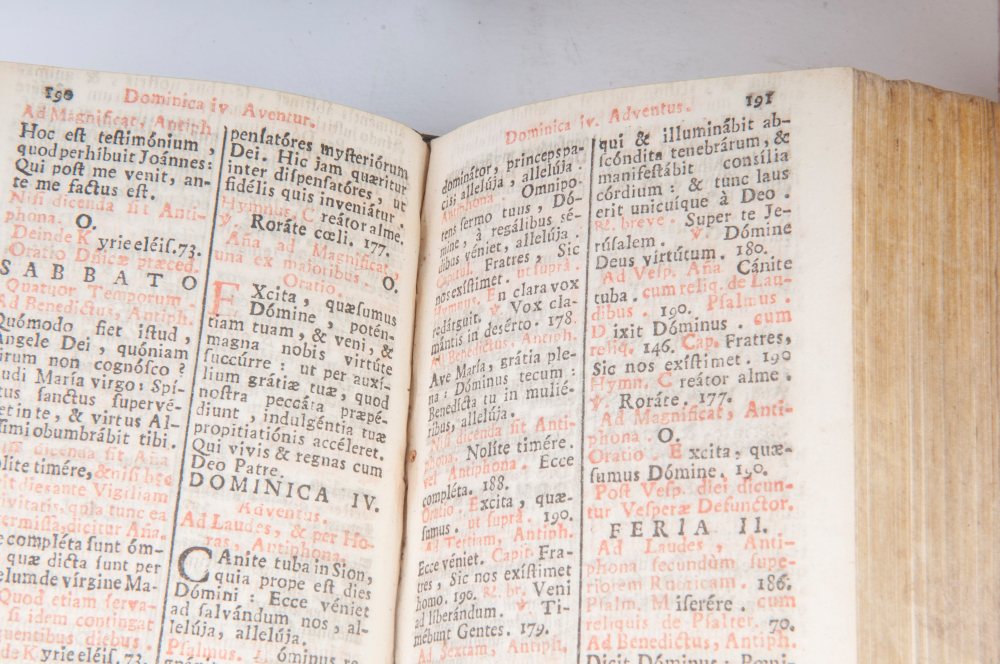 190 Dominica iv Aventur.
Ad Magnificat, Antiph.
Hoc est testimónium,
quod perhibuit Joánnes:
Qui post me venit, an-
te me factus est.
Nisi dicenda sit Anti-
phona. O.
Deinde Kyrie eléis. 73.
Oratio Dñicæ præced.
SABBATO
Quatuor Temporum.
Ad Benedictus, Antiph.
Quómodo fiet istud,
Angele Dei, quóniam
virum non cognósco?
Audi María virgo: Spí-
tus sanctus supervé-
et in te, & virtus Al-
ssimi obumbrábit tibi.
dicenda sit Aña
olite timére, & nisi hec
diesante Vigiliam
ivitatis, qua tunc ea
ermissa, dicitur Aña.
e compléta sunt óm-
quæ dicta sunt per
elum de vírgine Ma-
Quod etiam serva-
si idem contingat
quentibus diebus.
de Kyrie eléis. 73.
pensatóres mysteriórum
Dei. Hic jam quæritur
inter dispensatóres, ut
fidélis quis inveniátur.
Hymnus. Creátor alme.
℣. Roráte cœli. 177.
Aña ad Magnificat,
una ex majoribus. O.
Oratio.
EXcita, quæsumus
Dómine, potén-
tiam tuam, & veni, &
magna nobis virtúte
succúrre: ut per auxí-
lium grátiæ tuæ, quod
nostra peccáta præpé-
diunt, indulgéntia tuæ
propitiatiónis accéleret.
Qui vivis & regnas cum
Deo Patre.
DOMINICA IV.
Adventus.
Ad Laudes, & per Ho-
ras, Antiphona.
CAnite tuba in Sion,
quia prope est dies
Dómini: Ecce véniet
ad salvándum nos, al-
lelúja, allelúja.
Psalmus.
Dominica iv. Adventus. 191
dominátor, princeps pa-
cis, allelúja, allelúja.
Antiphona. Omnipo-
tens sermo tuus, Dó-
mine, à regálibus sé-
dibus véniet, allelúja.
Capitul. Fratres, Sic
nos exístimet. ut suprà.
Hymnus. En clara vox
redárguit. ℣. Vox cla-
mántis in desérto. 178.
Ad Benedictus, Antiph.
Ave María, grátia ple-
na: Dóminus tecum:
Benedícta tu in mulié-
ribus, allelúja.
Nisi dicenda sit Anti-
phona. Nolíte timére.
vel Antiphona. Ecce
compléta. 188.
Oratio. Excita, quæ-
sumus. ut suprà. 190.
Ad Tertiam, Antiph.
Ecce véniet. Capit. Fra-
tres, Sic nos exístimet
homo. 190. ℟. br. Veni
ad liberándum. ℣. Ti-
mébunt Gentes. 179.
Ad Sextam, Antiph.
qui & illuminábit ab-
scóndita tenebrárum, &
manifestábit consília
córdium: & tunc laus
erit unicuíque à Deo.
℟. breve. Super te Je-
rúsalem. ℣. Dómine
Deus virtútum. 180.
Ad Vesp. Aña Cánite
tuba. cum reliq. de Lau-
dibus. 190. Psalmus.
Dixit Dóminus. cum
reliq. 146. Cap. Fratres,
Sic nos exístimet. 190
Hymn. Creátor alme.
℣. Roráte. 177.
Ad Magnificat, Anti-
phona. O.
Oratio. Excita, quæ-
sumus Dómine. 190.
Post Vesp. diei dicun-
tur Vesperæ Defunctor.
FERIA II.
Ad Laudes, Anti-
phona secundum supe-
riorem Rubricam. 186.
Psalm. Miserére. cum
reliquis de Psalter. 70.
Ad Benedictus, Antiph.
Dicit Dóminus: